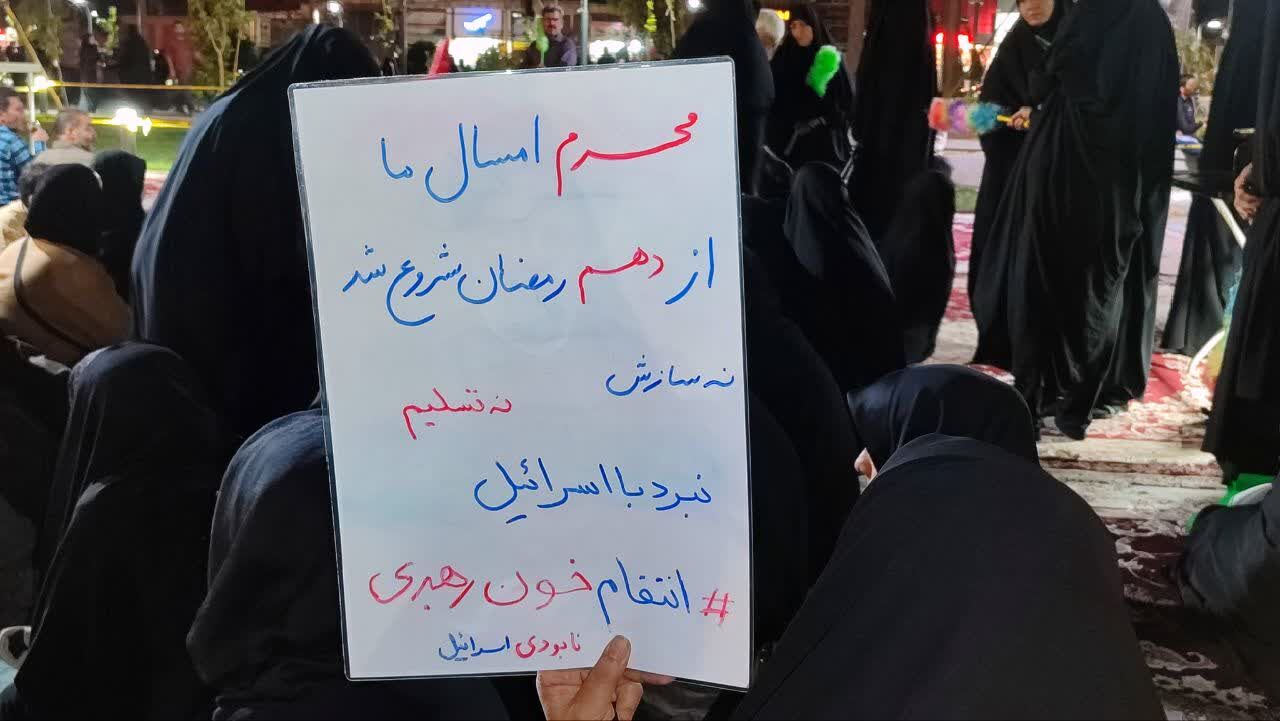 محرم امسال ما
از دهم رمضان شروع شد
نه سازش
نه تسلیم
نبرد با اسرائیل
#انتقام خون رهبری
نابودی اسرائیل